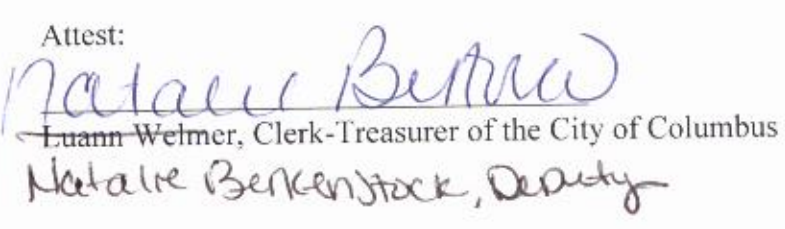 Attest:
Natalie
Luann Welmer, Clerk-Treasurer of the City of Columbus
Natalie Berkenstock, Deputy